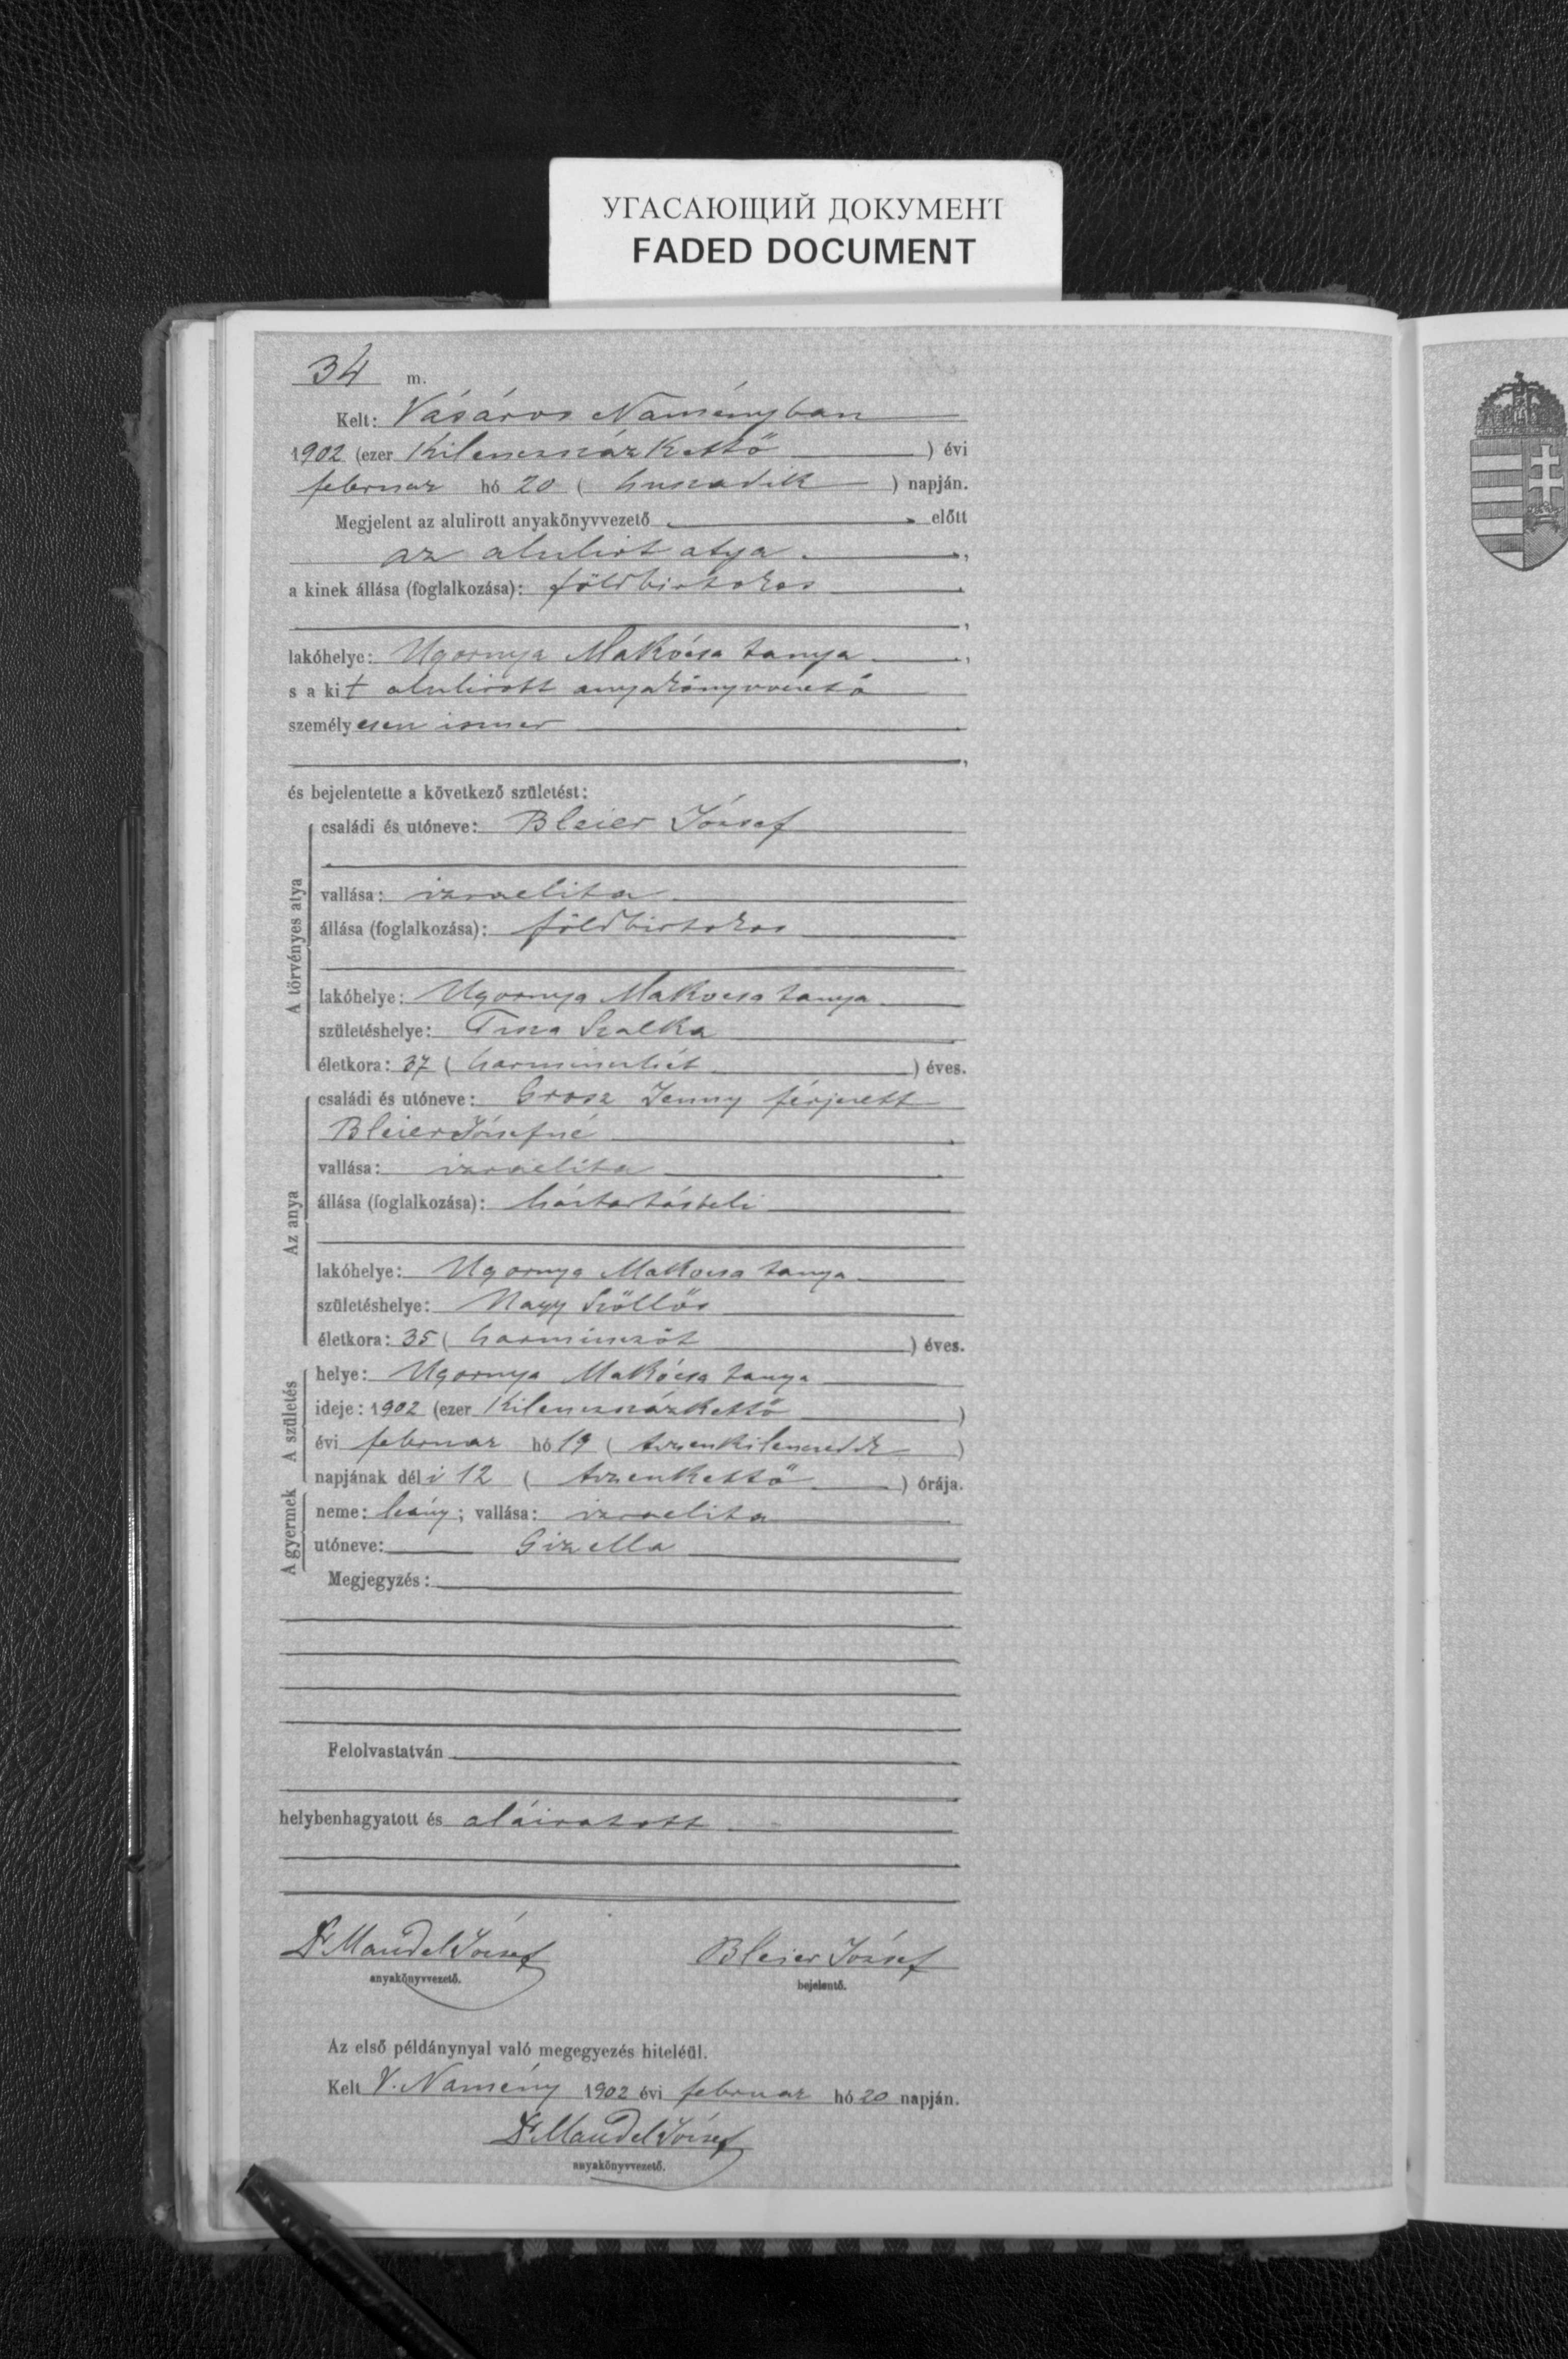 УГАСАЮЩИЙ ДОКУМЕНТ
FADED DOCUMENT
34 m.
Kelt: Vásáros Naményban
1902 (ezer kilenczszázkettő ) évi
februar hó 20 ( huszadik ) napján.
Megjelent az alulirott anyakönyvvezető előtt
az alulirt atya,
a kinek állása (foglalkozása): földbirtokos
lakóhelye: Ugornya Makócsa tanya,
s a kit alulirott anyakönyvvezető
személyesen ismer
és bejelentette a következő születést:
A törvényes atya
családi és utóneve: Bleier József
vallása: izraelita
állása (foglalkozása): földbirtokos
lakóhelye: Ugornya Makocsa tanya
születéshelye: Tisza Szalka
életkora: 37 ( harminczhét ) éves.
Az anya
családi és utóneve: Grosz Jenny férjezett
Bleier Józsefné
vallása: izraelita
állása (foglalkozása): háztartásbeli
lakóhelye: Ugornya Makocsa tanya
születéshelye: Nagy Szöllős
életkora: 35 ( harminczöt ) éves.
A születés
helye: Ugornya Makócsa tanya
ideje: 1902 (ezer kilenczszázkettő )
évi februar hó 19 ( tizenkilenczedik )
napjának déli 12 ( tizenkettő ) órája.
A gyermek
neme: leány; vallása: izraelita
utóneve: Gizella
Megjegyzés:
Felolvastatván
helybenhagyatott és aláiratott
Dr Mandel József
anyakönyvvezető.
Bleier József
bejelentő.
Az első példánynyal való megegyezés hiteléül.
Kelt V. Namény 1902 évi februar hó 20 napján.
Dr Mandel József
anyakönyvvezető.